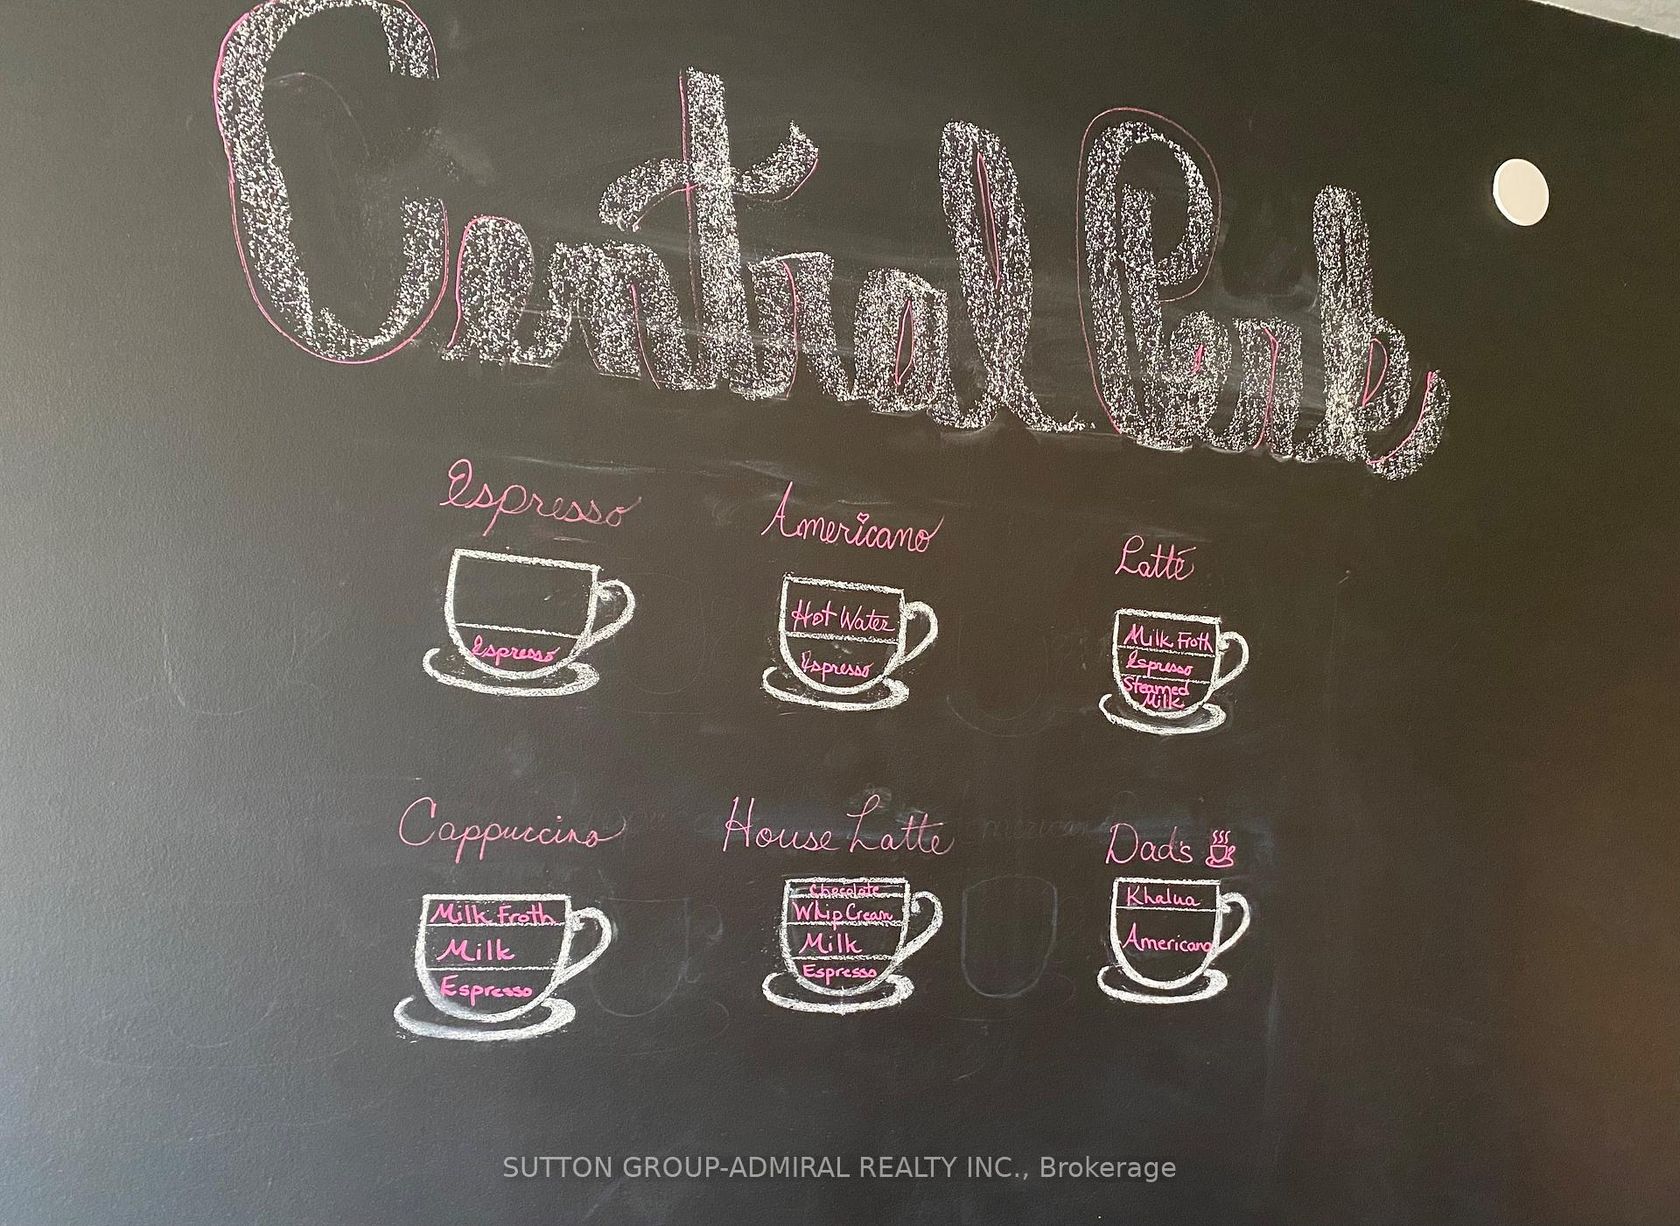 Central Perk
Espresso
Espresso
Americano
Hot Water
Espresso
Latté
Milk Froth
Espresso
Steamed
Milk
Cappuccino
Milk Froth
Milk
Espresso
House Latte
Chocolate
Whip Cream
Milk
Espresso
Dad's
Khalua
Americano
SUTTON GROUP-ADMIRAL REALTY INC., Brokerage